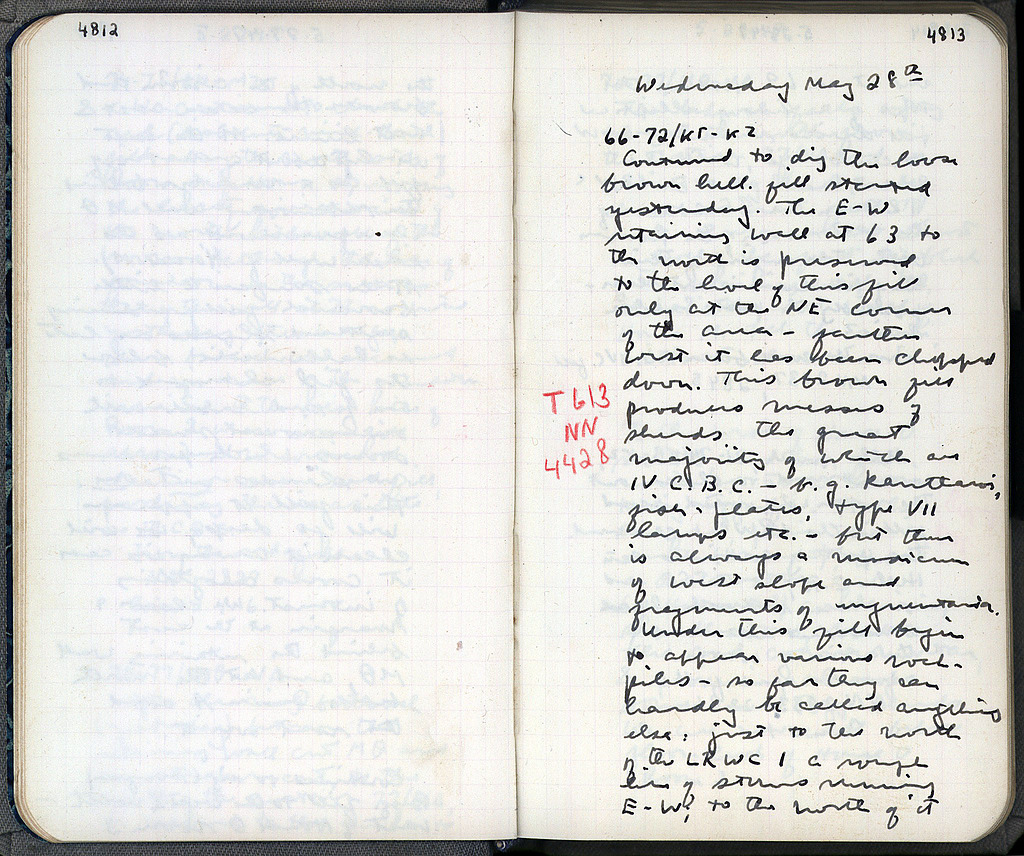 4812
4813
Wednesday May 28th
66-72/ΚΓ-ΚΖ
Continued to dig the loose
brown hell. fill started
yesterday. The E-W
retaining wall at 63 to
the north is preserved
to the level of this fill
only at the NE corner
of the area - farther
West it has been chopped
down. This brown fill
T 613
NN
4428
produces masses of
sherds, the great
majority of which are
IV C. B.C. - e.g. kantharoi,
fish-plates, type VII
lamps etc. - but there
is always a modicum
of west slope and
fragments of unguentaria.
Under this fill begin
to appear various rock-
piles - so far they can
hardly be called anything
else; just to the north
of the LRWC 1 a rough
line of stones running
E-W; to the north of it